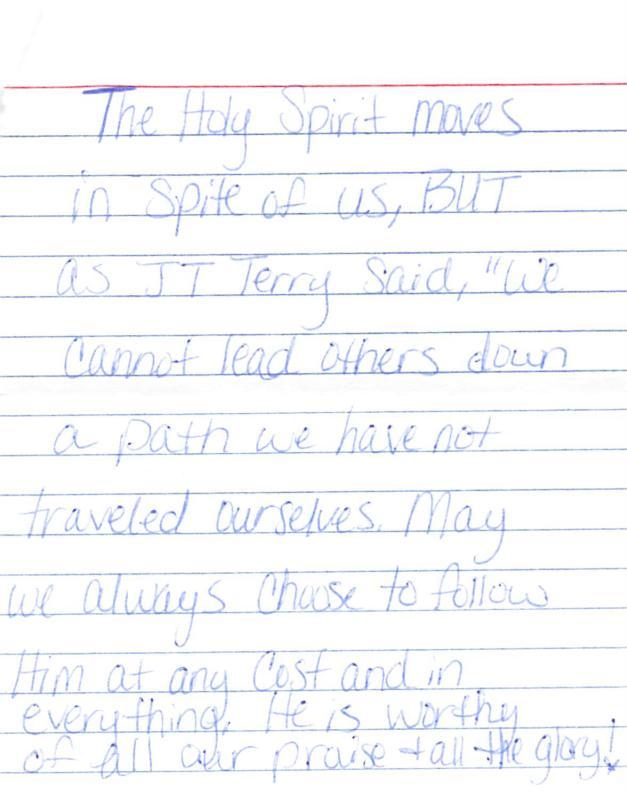 The Holy Spirit moves
in spite of us, BUT
as JT Terry said, "We
cannot lead others down
a path we have not
traveled ourselves. May
we always choose to follow
Him at any cost and in
everything. He is worthy
of all our praise + all the glory!